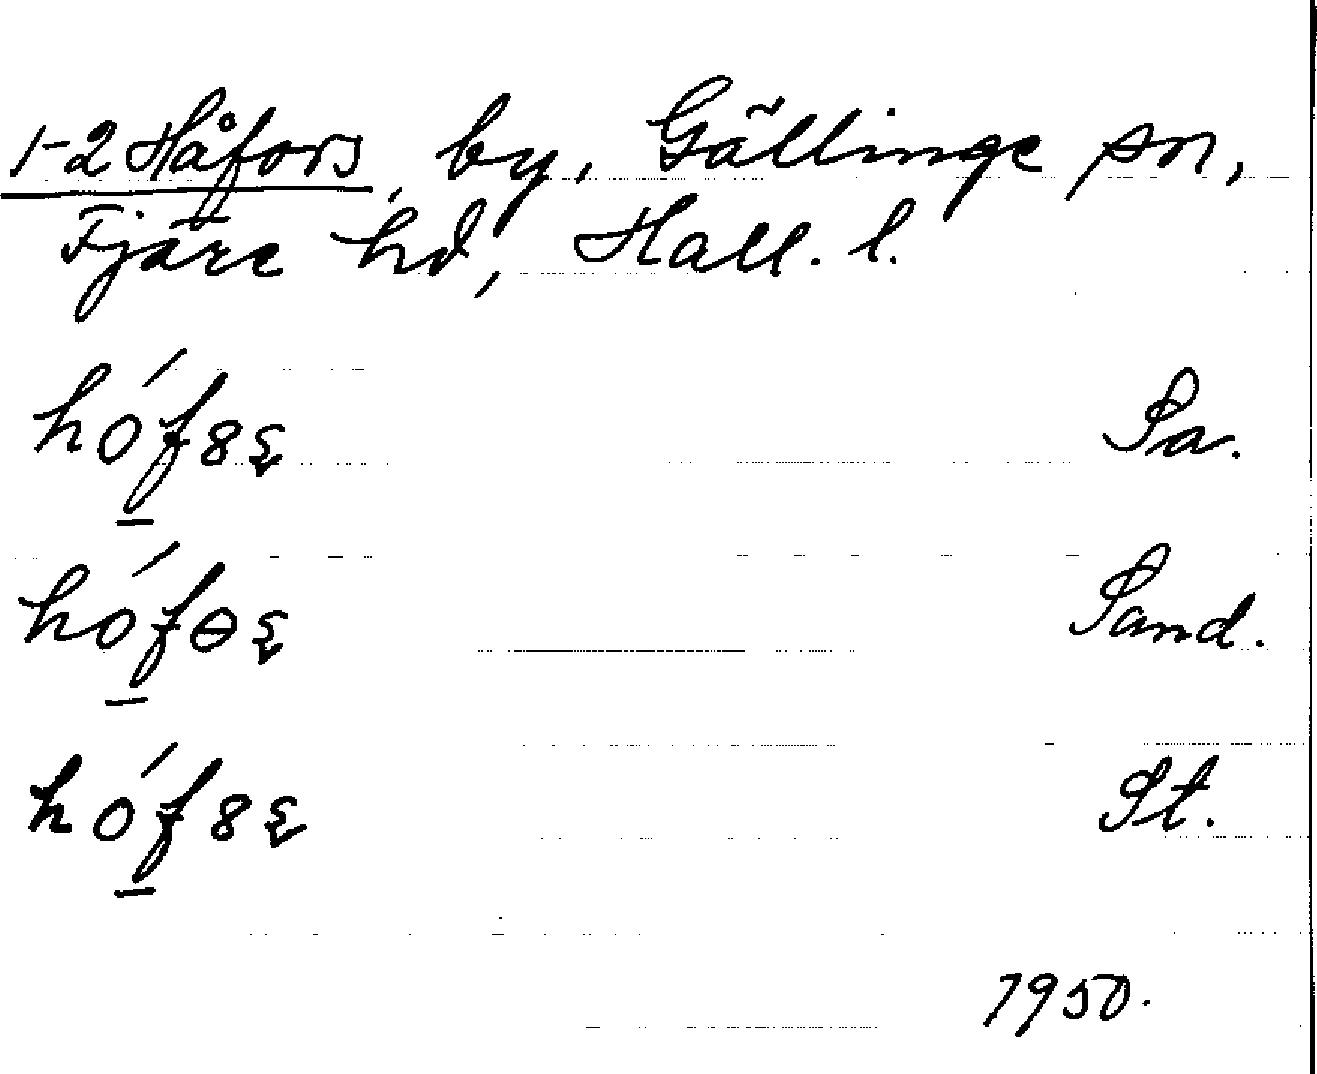 1-2 Håfors, by, Gällinge sn,
Fjäre hd, Hall. l.
hófꝸs Sa.
hófɵs Sand.
hófꝸs St.
1950.